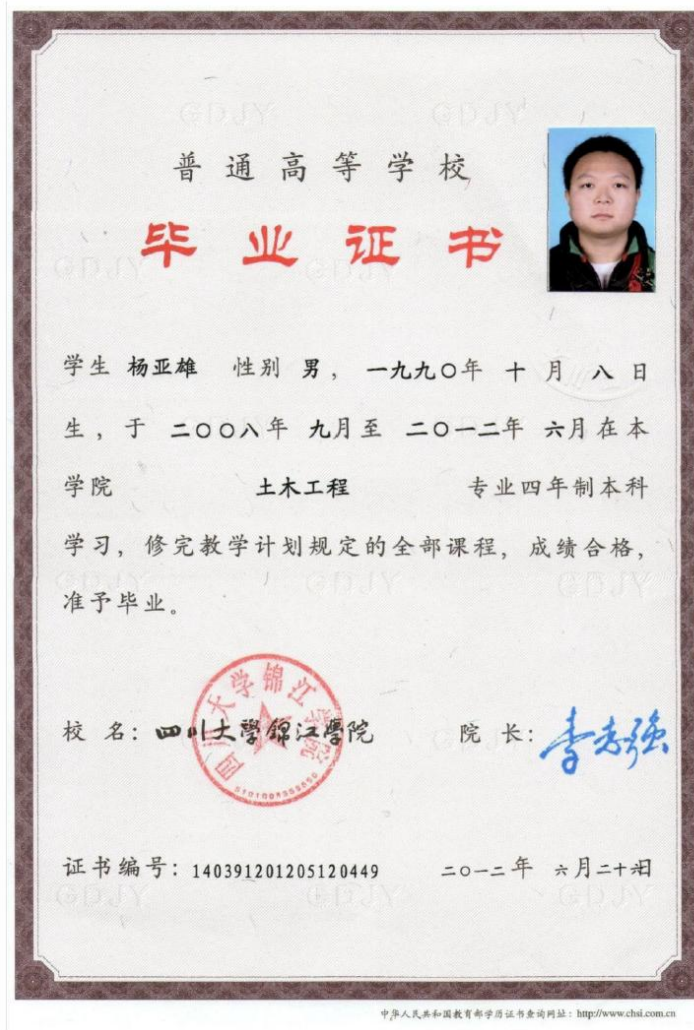 普通高等学校
毕业证书
学生 杨亚雄 性别 男，一九九〇年 十 月 八 日
生，于 二〇〇八年 九月至 二〇一二年 六月在本
学院 土木工程 专业四年制本科
学习，修完教学计划规定的全部课程，成绩合格，
准予毕业。
四川大学锦江学院
校 名：四川大學錦江學院 院 长：李志强
证书编号：140391201205120449 二〇一二年 六月二十六日
中华人民共和国教育部学历证书查询网址：http://www.chsi.com.cn
GDJY